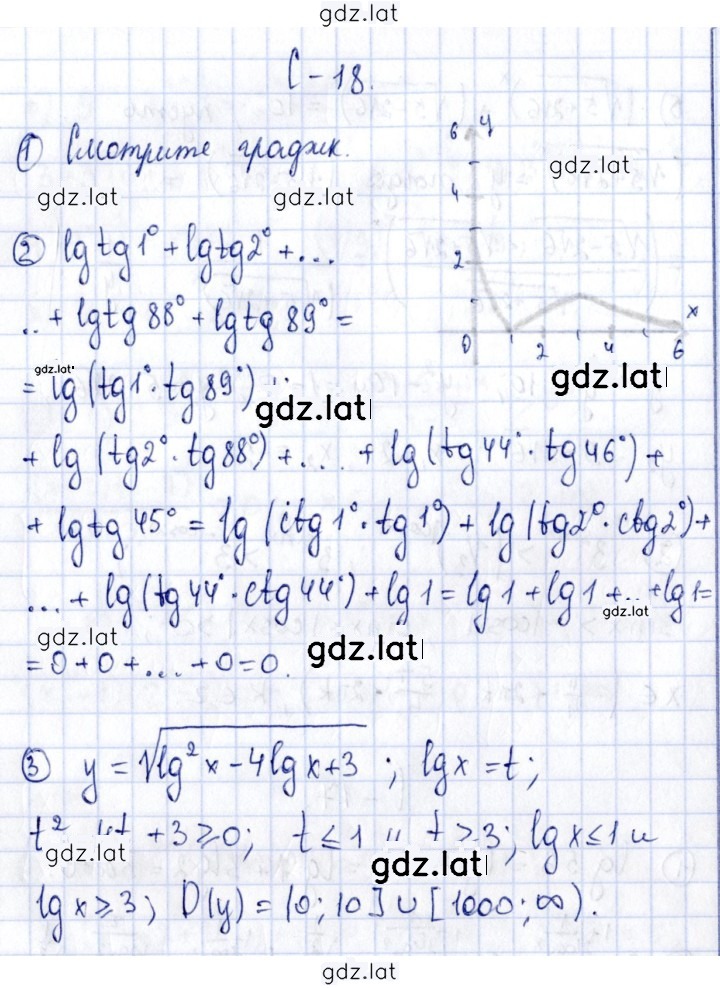 gdz.lat
С-18.
① Смотрите график.
6 y
4
2
0 2 4 6 x
gdz.lat
gdz.lat gdz.lat
② lg tg 1° + lg tg 2° + ...
.. + lg tg 88° + lg tg 89° =
gdz.lat
gdz.lat
= lg (tg 1° · tg 89°) ...
gdz.lat
+ lg (tg 2° · tg 88°) + ... + lg (tg 44° · tg 46°) +
+ lg tg 45° = lg (ctg 1° · tg 1°) + lg (tg 2° · ctg 2°) +
... + lg (tg 44° · ctg 44°) + lg 1 = lg 1 + lg 1 + .. + lg 1 =
gdz.lat
gdz.lat gdz.lat
= 0 + 0 + ... + 0 = 0.
③ y = √lg² x - 4 lg x + 3 ; lg x = t;
t² - 4t + 3 ≥ 0; t ≤ 1 и t ≥ 3; lg x ≤ 1 и
gdz.lat gdz.lat
lg x ≥ 3; D(y) = (0; 10] ∪ [1000; ∞).
gdz.lat